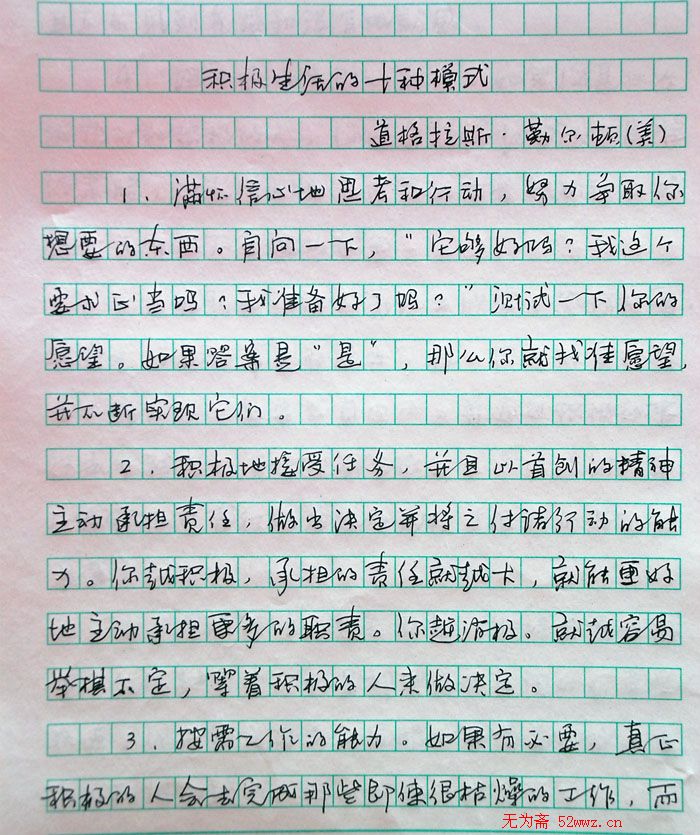 积极生活的十种模式
道格拉斯·勒尔顿(美)
1.满怀信心地思考和行动,努力争取你
想要的东西。自问一下,“它够好吗?我这个
要求正当吗?我准备好了吗?”测试一下你的
愿望。如果答案是“是”,那么你就找准愿望,
并不断实现它们。
2.积极地接受任务,并且以首创的精神
主动承担责任,做出决定并将之付诸行动的能
力。你越积极,承担的责任就越大,就能更好
地主动承担更多的职责。你越消极。就越容易
举棋不定,等着积极的人来做决定。
3.按需工作的能力。如果有必要,真正
积极的人会去完成那些即使很枯燥的工作,而
无为斋 52wwz.cn